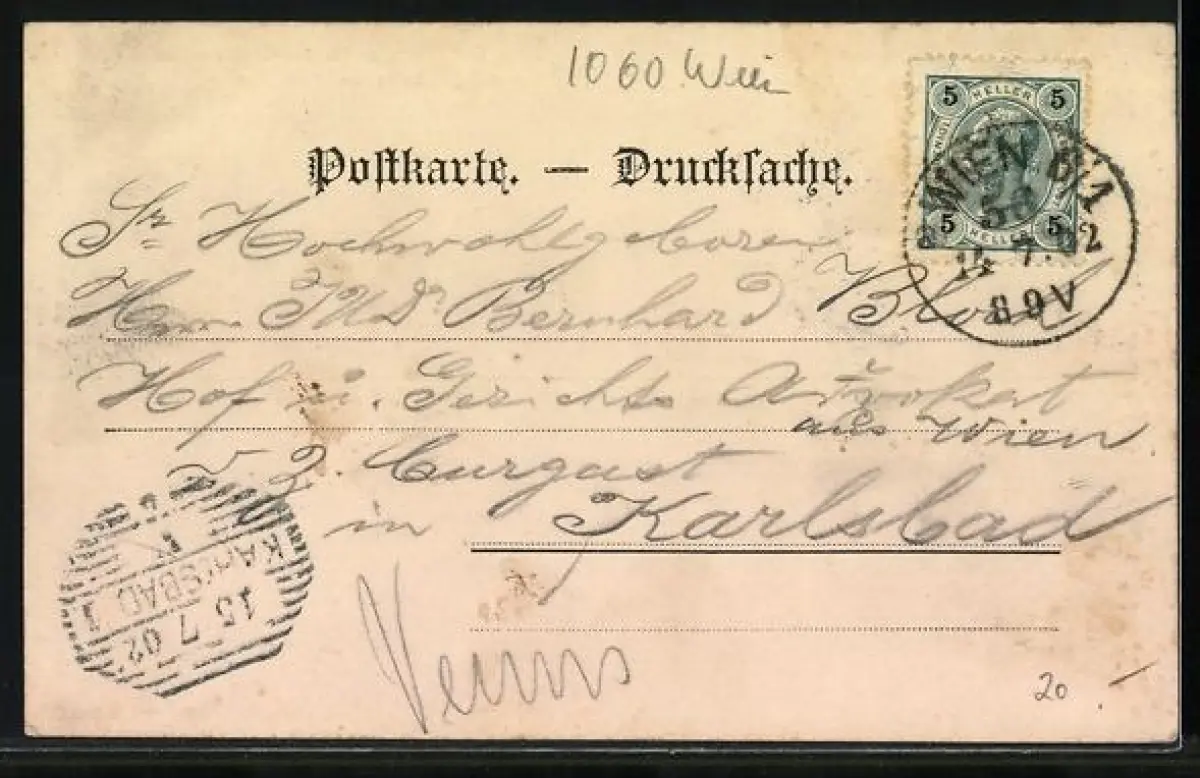 1060 Wien
5 HELLER 5
5 HELLER 5
WIEN 6/1
14 7.02
8 9V
Postkarte. — Drucksache.
Sr Hochwohlgeboren
Herrn JUDr Bernhard Bloch
Hof u. Gerichts Advokat
aus Wien
z. Z. Curgast
in Karlsbad
KARLSBAD 1
15 7 02
Venus
20.-